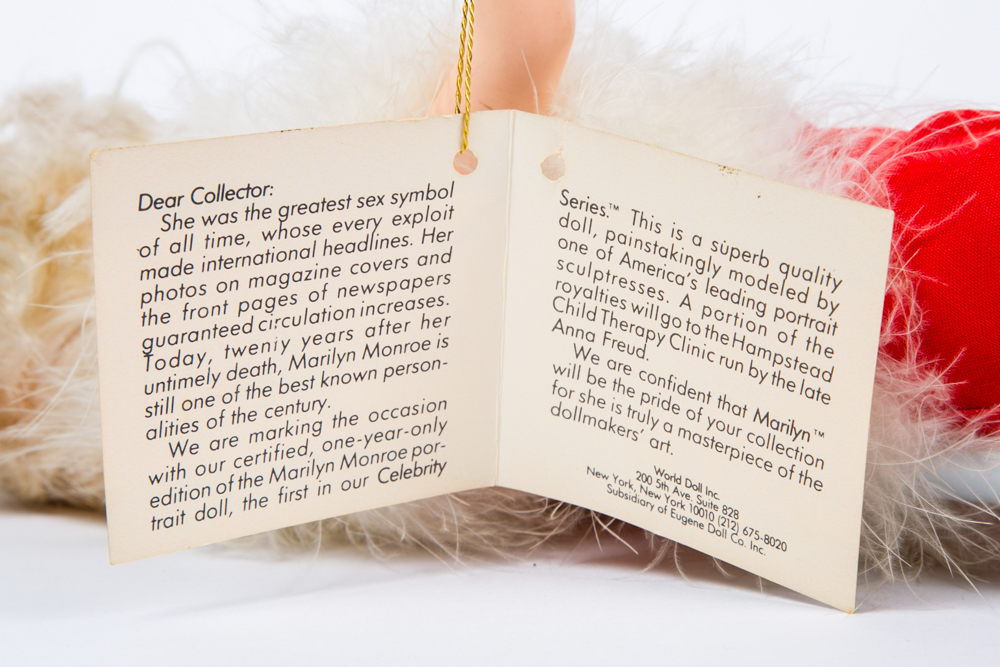 Dear Collector:
She was the greatest sex symbol
of all time, whose every exploit
made international headlines. Her
photos on magazine covers and
the front pages of newspapers
guaranteed circulation increases.
Today, twenty years after her
untimely death, Marilyn Monroe is
still one of the best known person-
alities of the century.
We are marking the occasion
with our certified, one-year-only
edition of the Marilyn Monroe por-
trait doll, the first in our Celebrity
Series.™ This is a superb quality
doll, painstakingly modeled by
one of America's leading portrait
sculptresses. A portion of the
royalties will go to the Hampstead
Child Therapy Clinic run by the late
Anna Freud.
We are confident that Marilyn™
will be the pride of your collection
for she is truly a masterpiece of the
dollmakers' art.
World Doll Inc.
200 5th Ave. Suite 828
New York, New York 10010 (212) 675-8020
Subsidiary of Eugene Doll Co. Inc.